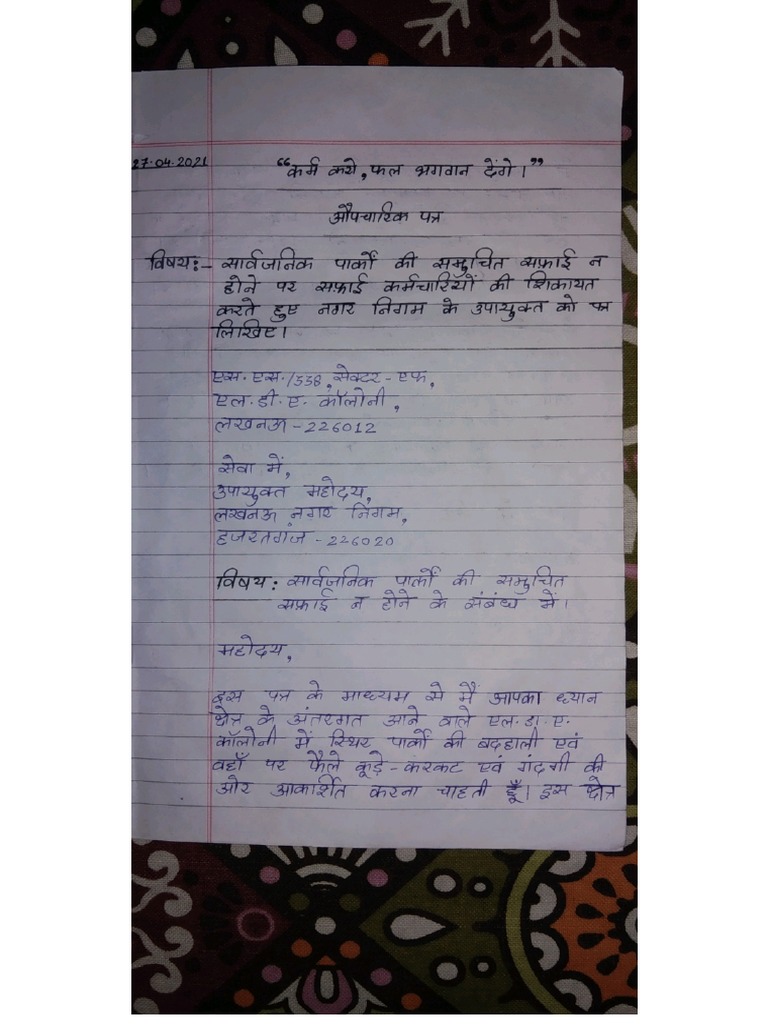 27.04.2021
“कर्म करो, फल भगवान देंगे।”
औपचारिक पत्र
विषय:- सार्वजनिक पार्कों की समुचित सफ़ाई न
होने पर सफ़ाई कर्मचारियों की शिकायत
करते हुए नगर निगम के उपायुक्त को पत्र
लिखिए।
एस.एस./338, सेक्टर-एफ,
एल.डी.ए. कॉलोनी,
लखनऊ-226012
सेवा में,
उपायुक्त महोदय,
लखनऊ नगर निगम,
हजरतगंज-226020
विषय: सार्वजनिक पार्कों की समुचित
सफ़ाई न होने के संबंध में।
महोदय,
इस पत्र के माध्यम से मैं आपका ध्यान
क्षेत्र के अंतरगत आने वाले एल.डी.ए.
कॉलोनी में स्थिर पार्कों की बदहाली एवं
वहाँ पर फैले कूड़े-करकट एवं गंदगी की
ओर आकर्शित करना चाहती हूँ। इस क्षेत्र